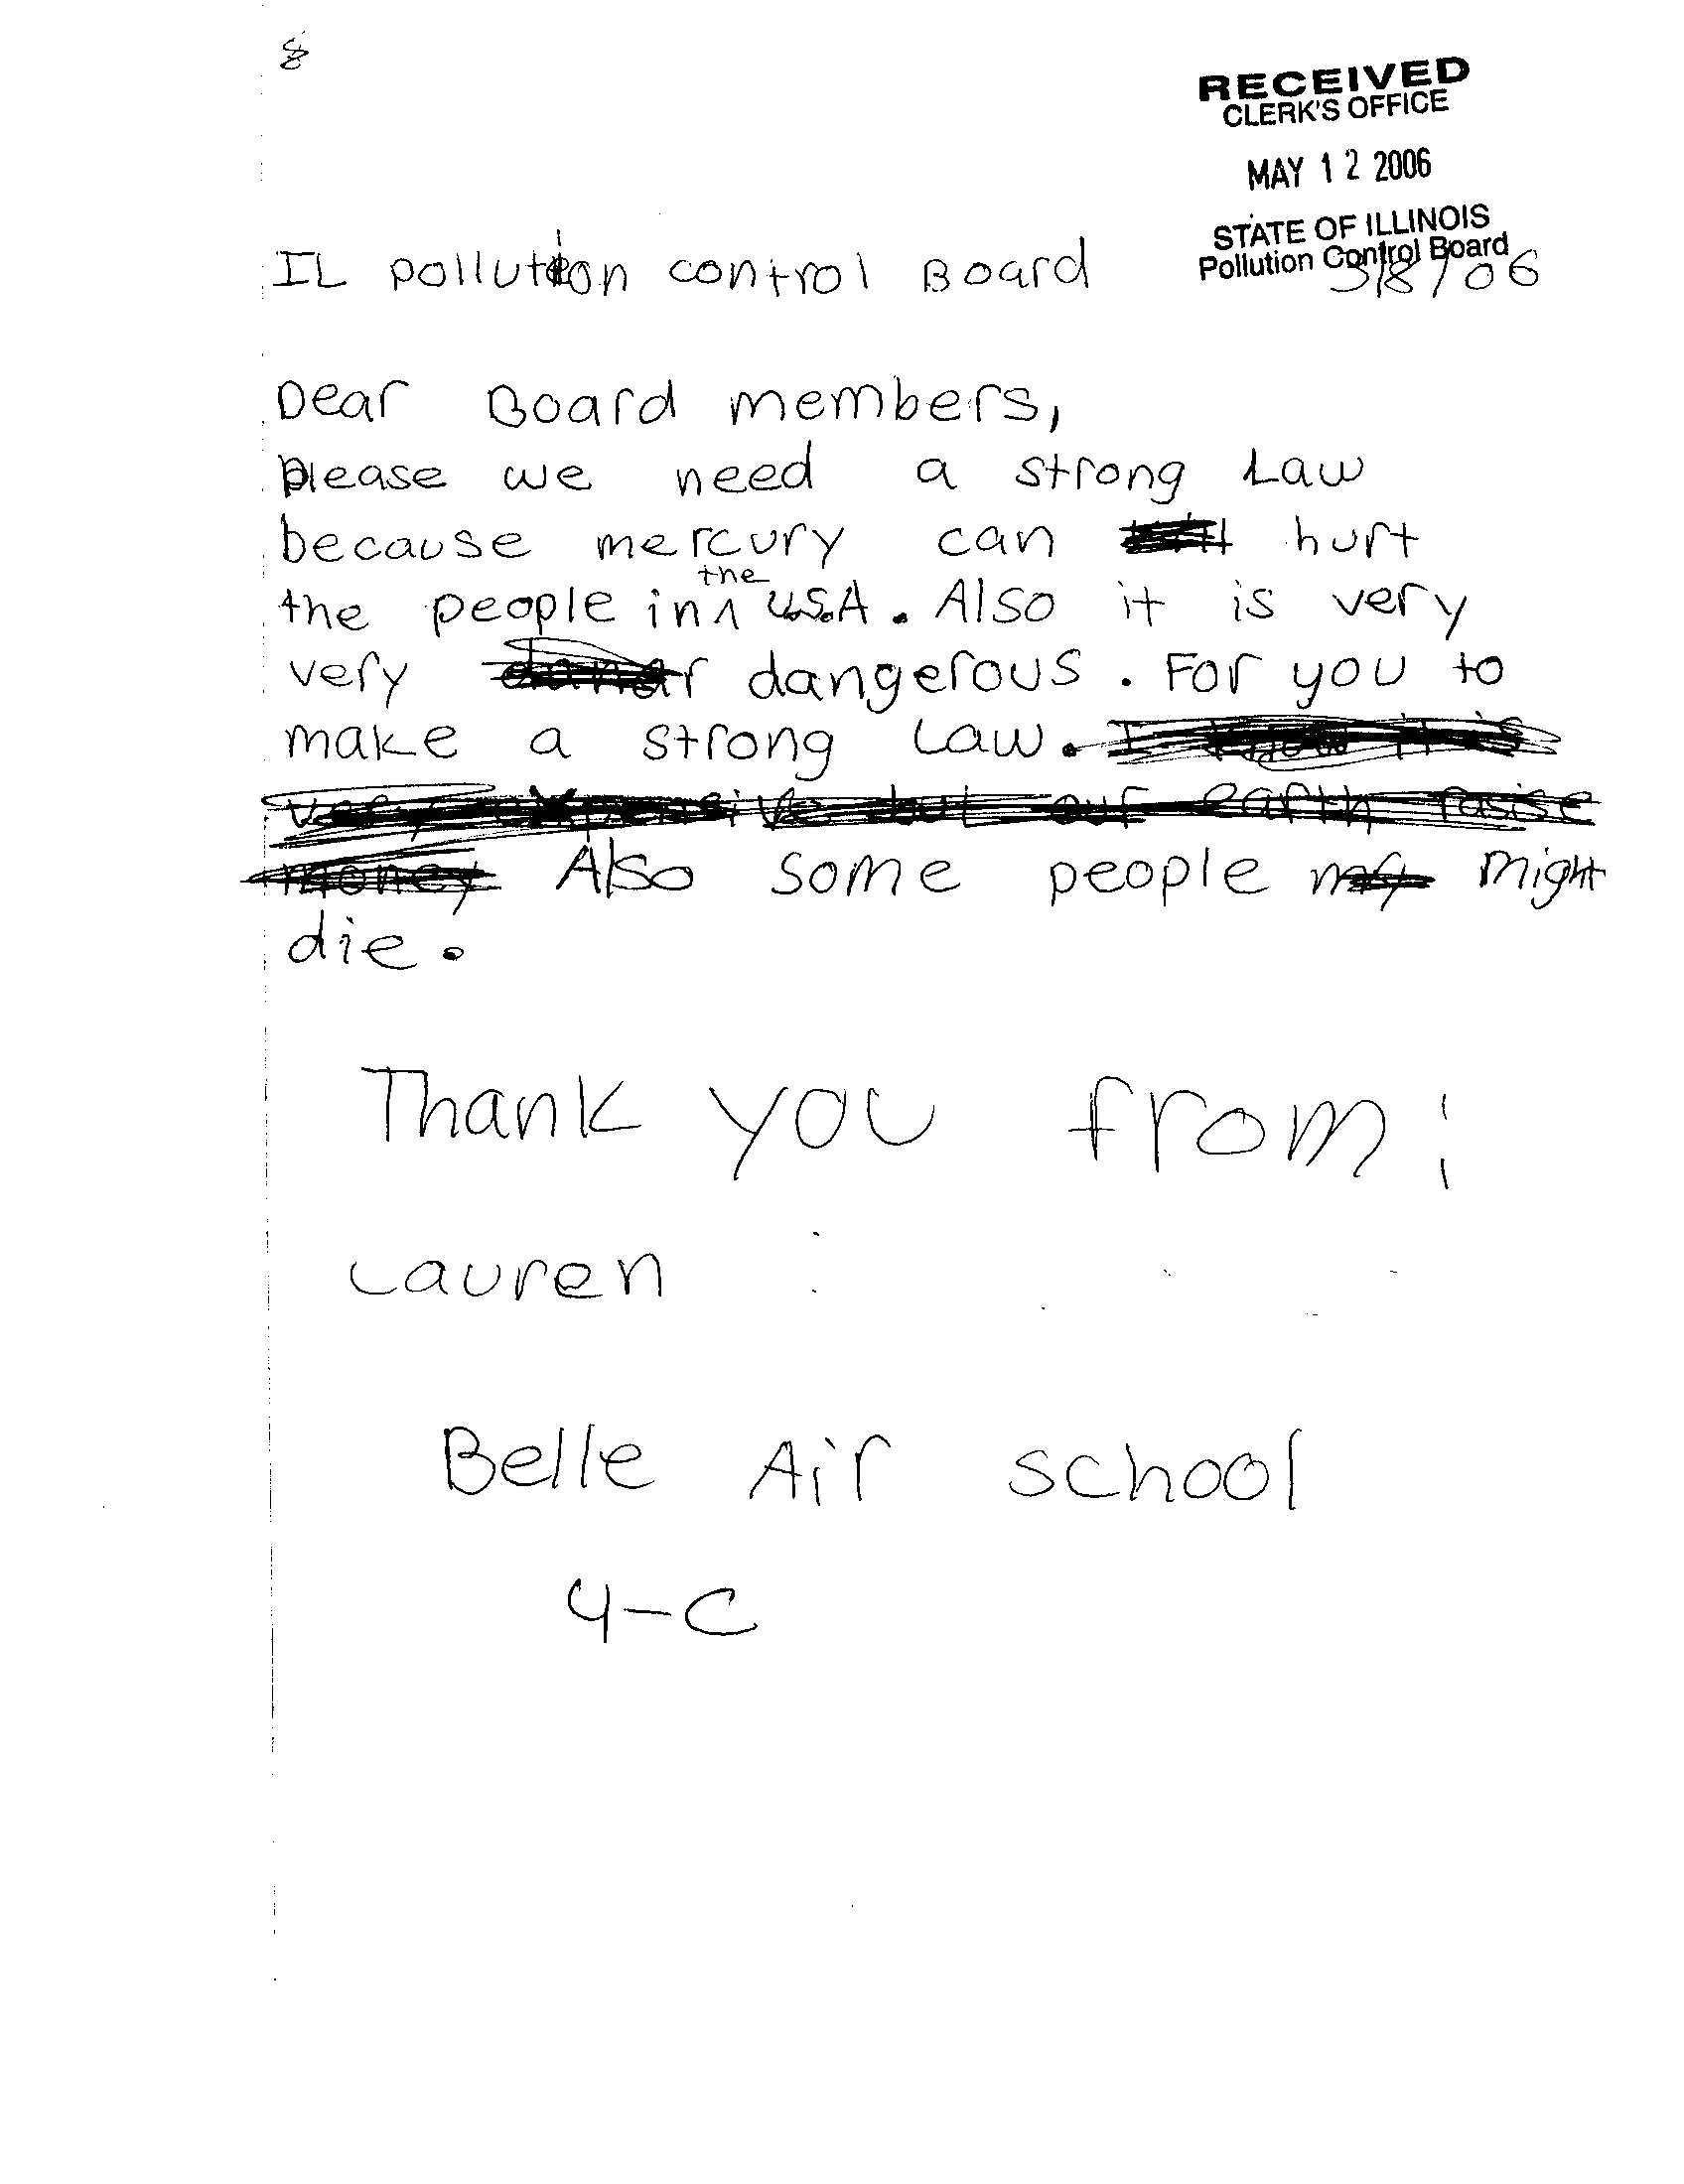 8
RECEIVED
CLERK'S OFFICE
MAY 12 2006
STATE OF ILLINOIS
Pollution Control Board
IL pollution control Board
/06
Dear Board members,
please we need a strong Law
because mercury can hurt
the people in the U.S.A. Also it is very
very dangerous. For you to
make a strong Law.
Also some people might
die.
Thank you from:
Lauren
Belle Air school
4-C